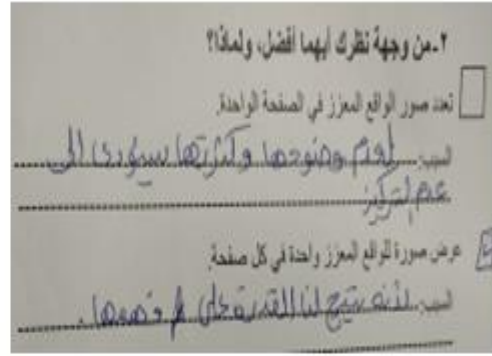 ٢-من وجهة نظرك أيهما أفضل، ولماذا؟
تعدد صور الواقع المعزز في الصفحة الواحدة.
السبب: لعدم وضوحها وكثرتها سيؤدي الى
عدم التركيز
عرض صورة للواقع المعزز واحدة في كل صفحة.
السبب: لأنه يتيح لنا القدرة على فهمها.